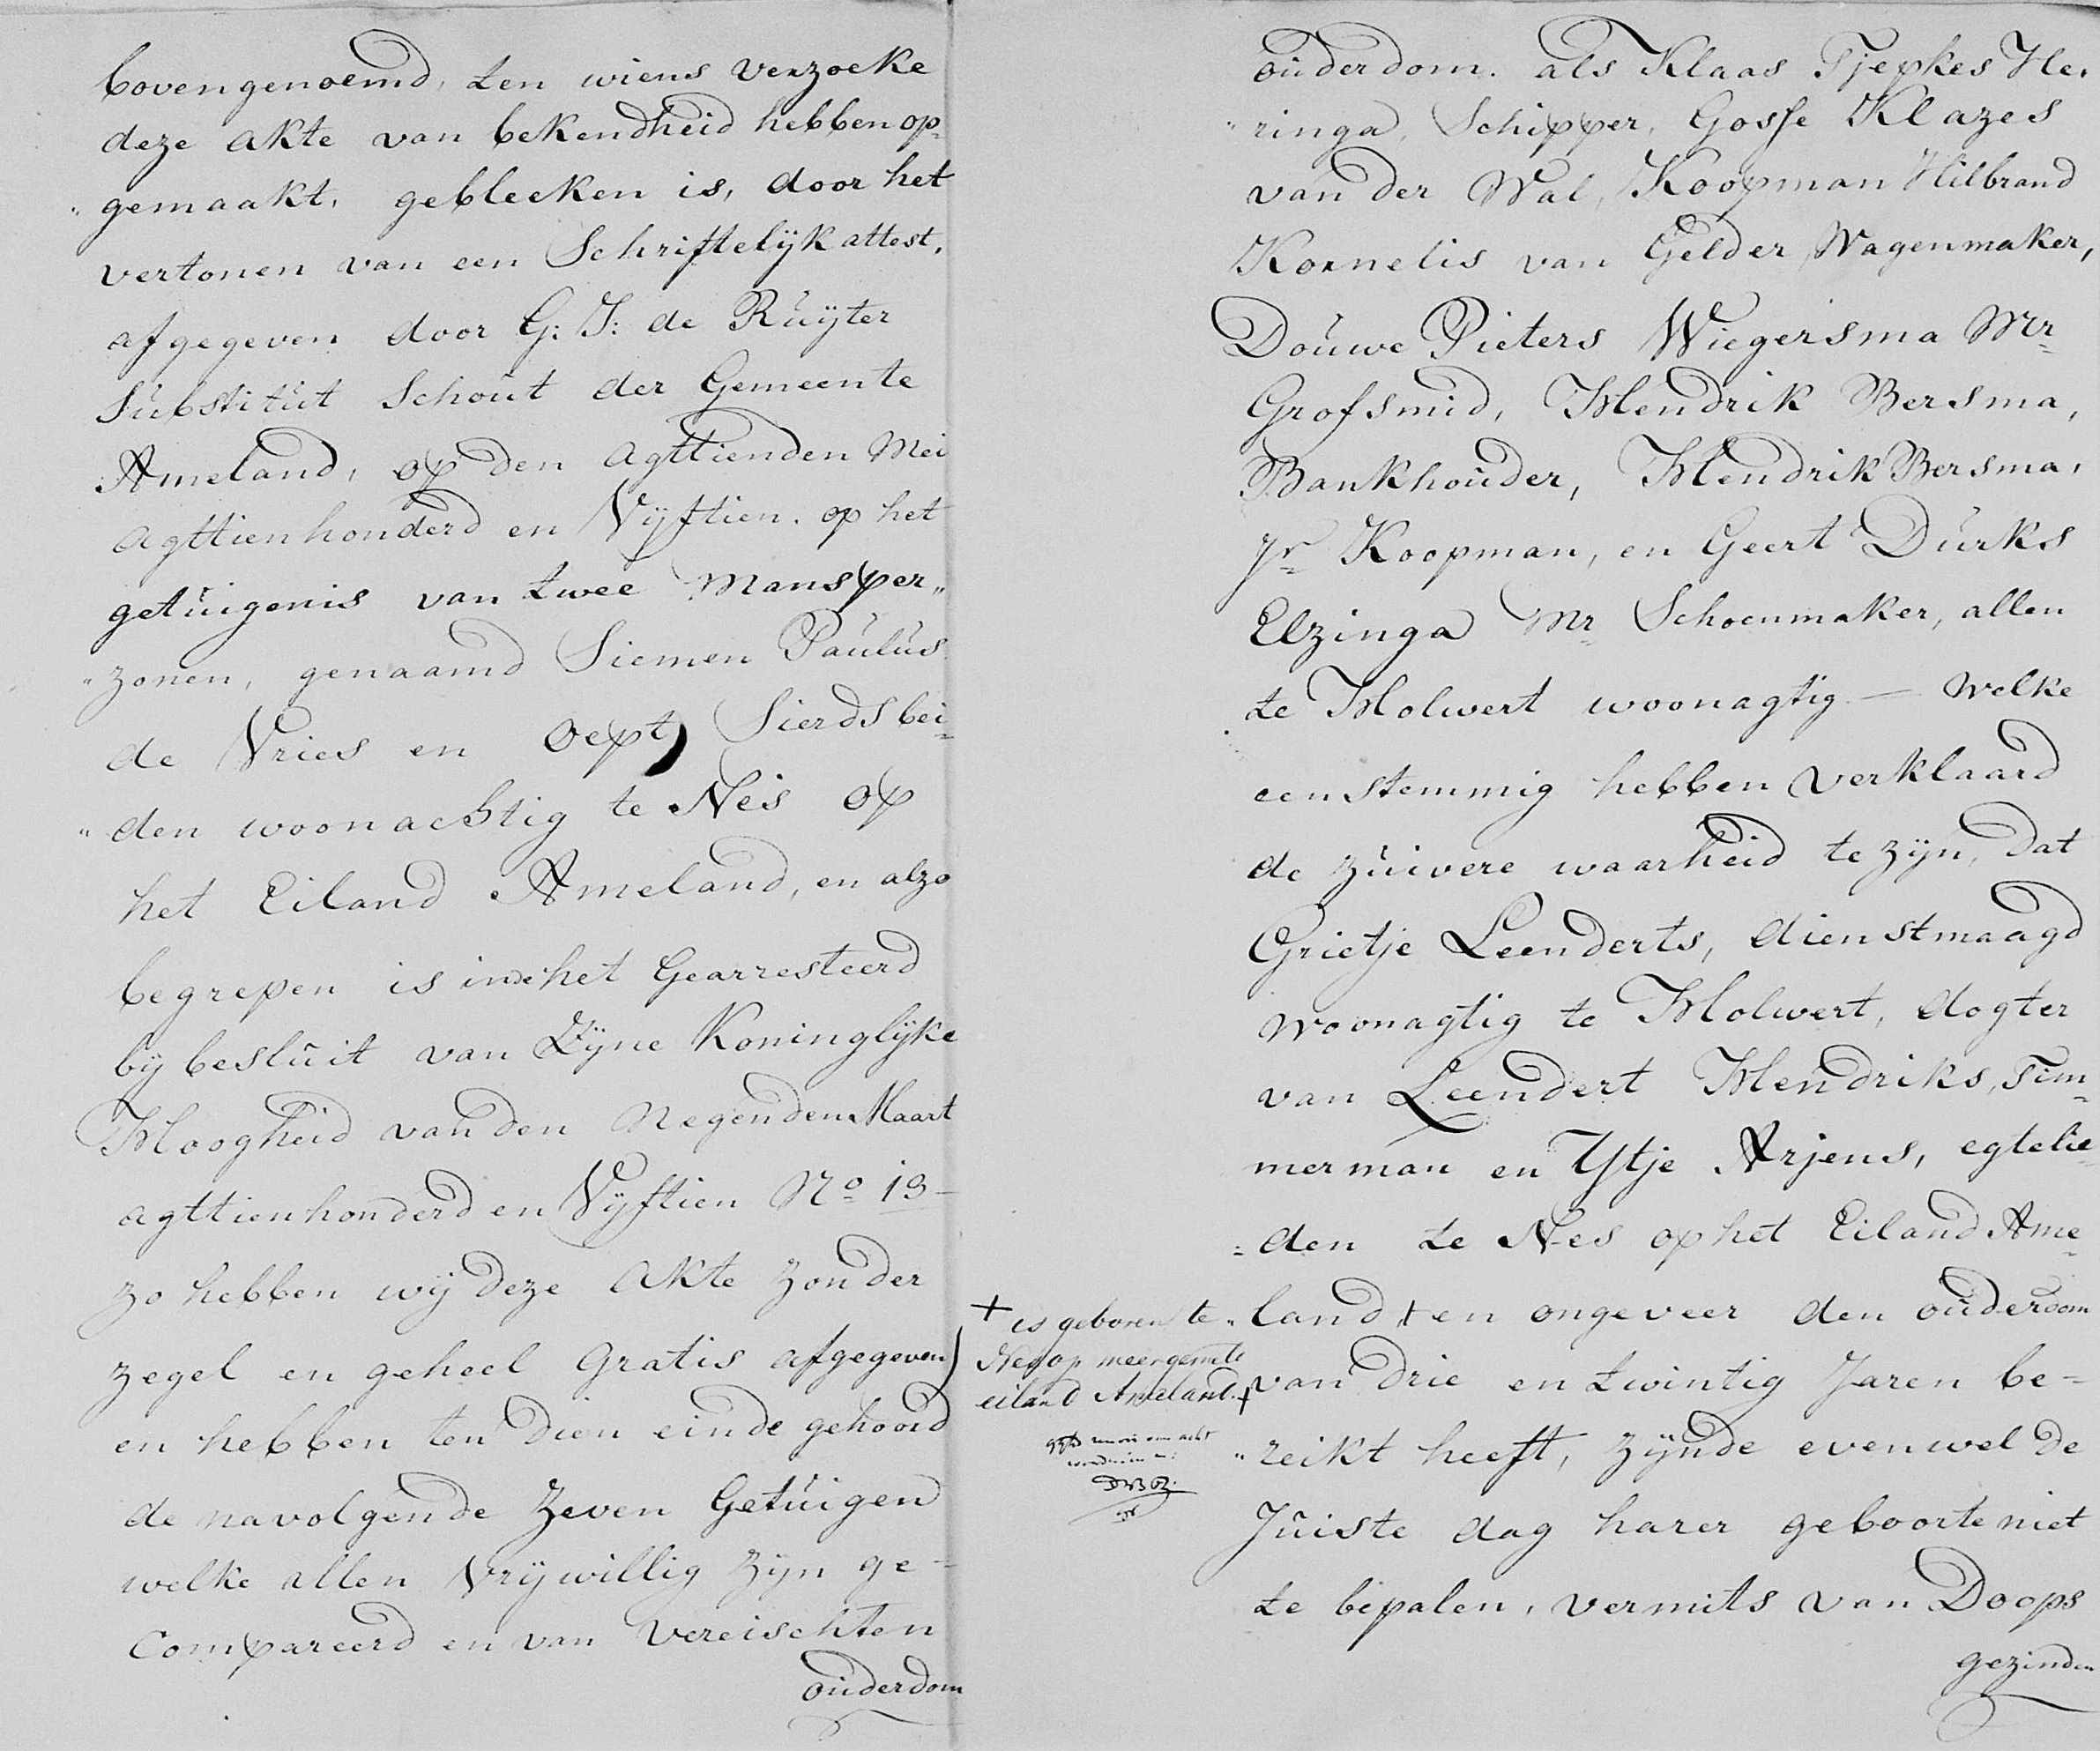 bovengenoemd, ten wiens verzoeke
deze akte van bekendheid hebben op-
„gemaakt, gebleeken is, door het
vertonen van een Schriftelijk attest,
afgegeven door G: J: de Ruijter
Substitut Schout der Gemeente
Ameland, op den agttienden Mei
agttienhonderd en Vijftien. op het
getuigenis van twee Mansper„
„zonen, genaamd Siemen Paulus
de Vries en Oept Sierds bei-
„den woonachtig te Nes op
het Eiland Ameland, en alzo
begrepen is in het Gearresteerd
bij besluit van Zijne Koninglijke
Hoogheid van den Negenden Maart
agttienhonderd en Vijftien No 13 –
zo hebben wij deze Akte zonder
zegel en geheel Gratis afgegeven
en hebben ten dien einde gehoord
de navolgende Zeven Getuigen
welke allen Vrijwillig zijn ge-
Compareerd en van Vereischten
ouderdom
ouderdom. als Klaas Tjepkes He,
„ringa, Schipper, Gosse Klazes
van der Wal, Koopman Hilbrand
Kornelis van Gelder, Wagenmaker,
Douwe Pieters Wiegersma Mr
Grofsmid, Hendrik Bersma,
Bankhouder, Hendrik Bersma,
Jr Koopman, en Geert Durks
Elzinga Mr Schoenmaker, allen
te Holwert woonagtig — welke
eenstemmig hebben verklaard
de zuivere waarheid te zijn, dat
Grietje Leenderts, dienstmaagd
woonagtig te Holwert, dogter
van Leendert Hendriks, Tim-
merman en Ytje Arjens, egtelie-
=den te Nes op het Eiland Ame-
„land, + en ongeveer den ouderdom
van drie en twintig Jaren be-
„reikt heeft, zijnde evenwel de
Juiste dag harer geboorte niet
te bepalen, vermits van Doops
gezinden
+ is geboren te
Nes op meergemte
eiland Ameland.